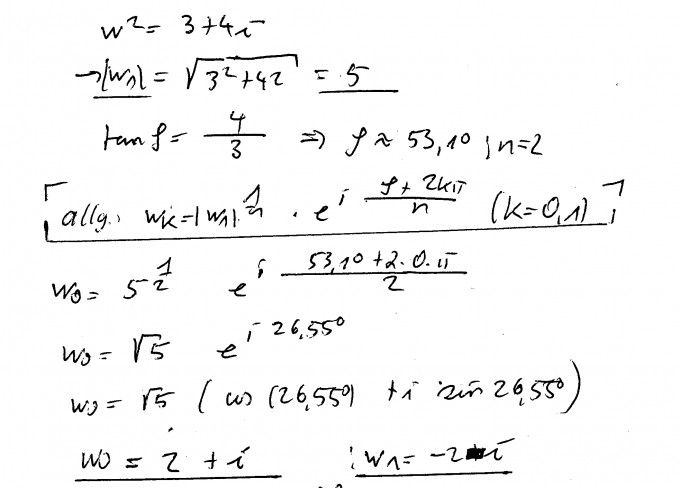 w² = 3+4i
→|w₁| = √(3²+42) = 5
tan φ = 4/3 ⇒ φ ≈ 53,1° ; n=2
allg.: wk=|w₁|^(1/n) · e^(i (φ+2kπ)/n) (k=0,1)
w₀ = 5^(1/2) e^(i (53,1°+2·0·π)/2)
w₀ = √5 e^(i 26,55°)
w₀ = √5 (cos (26,55°) + i sin 26,55°)
w₀ = 2 + i ; w₁ = -2-i